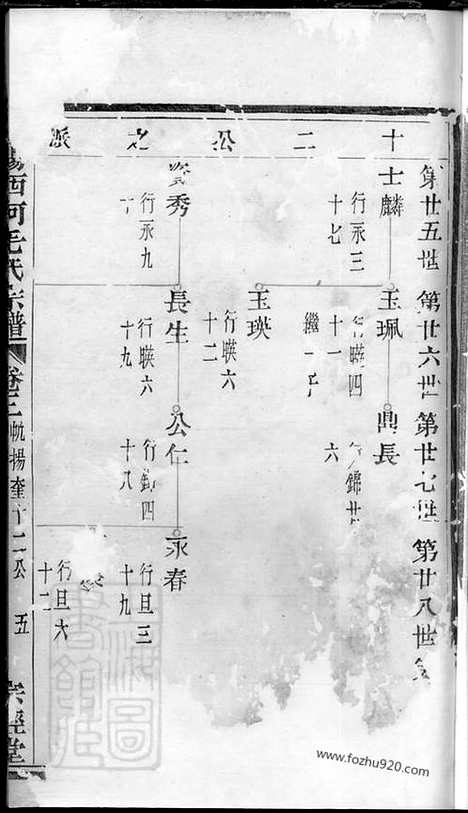 十二公之派
第廿五世 第廿六世 第廿七世 第廿八世
士麟
行永三
十七
玉珮
行暎四
十一
繼一子
鼎長
錦廿
六
玉瑛
行暎六
十二
秀
行永九
十
長生
行暎六
十九
公仁
行錦四
十八
永春
行旦三
十九
行旦六
十二
西河毛氏宗譜
卷三
軌揚奎十二公
五
宗經堂
www.fozhu920.com